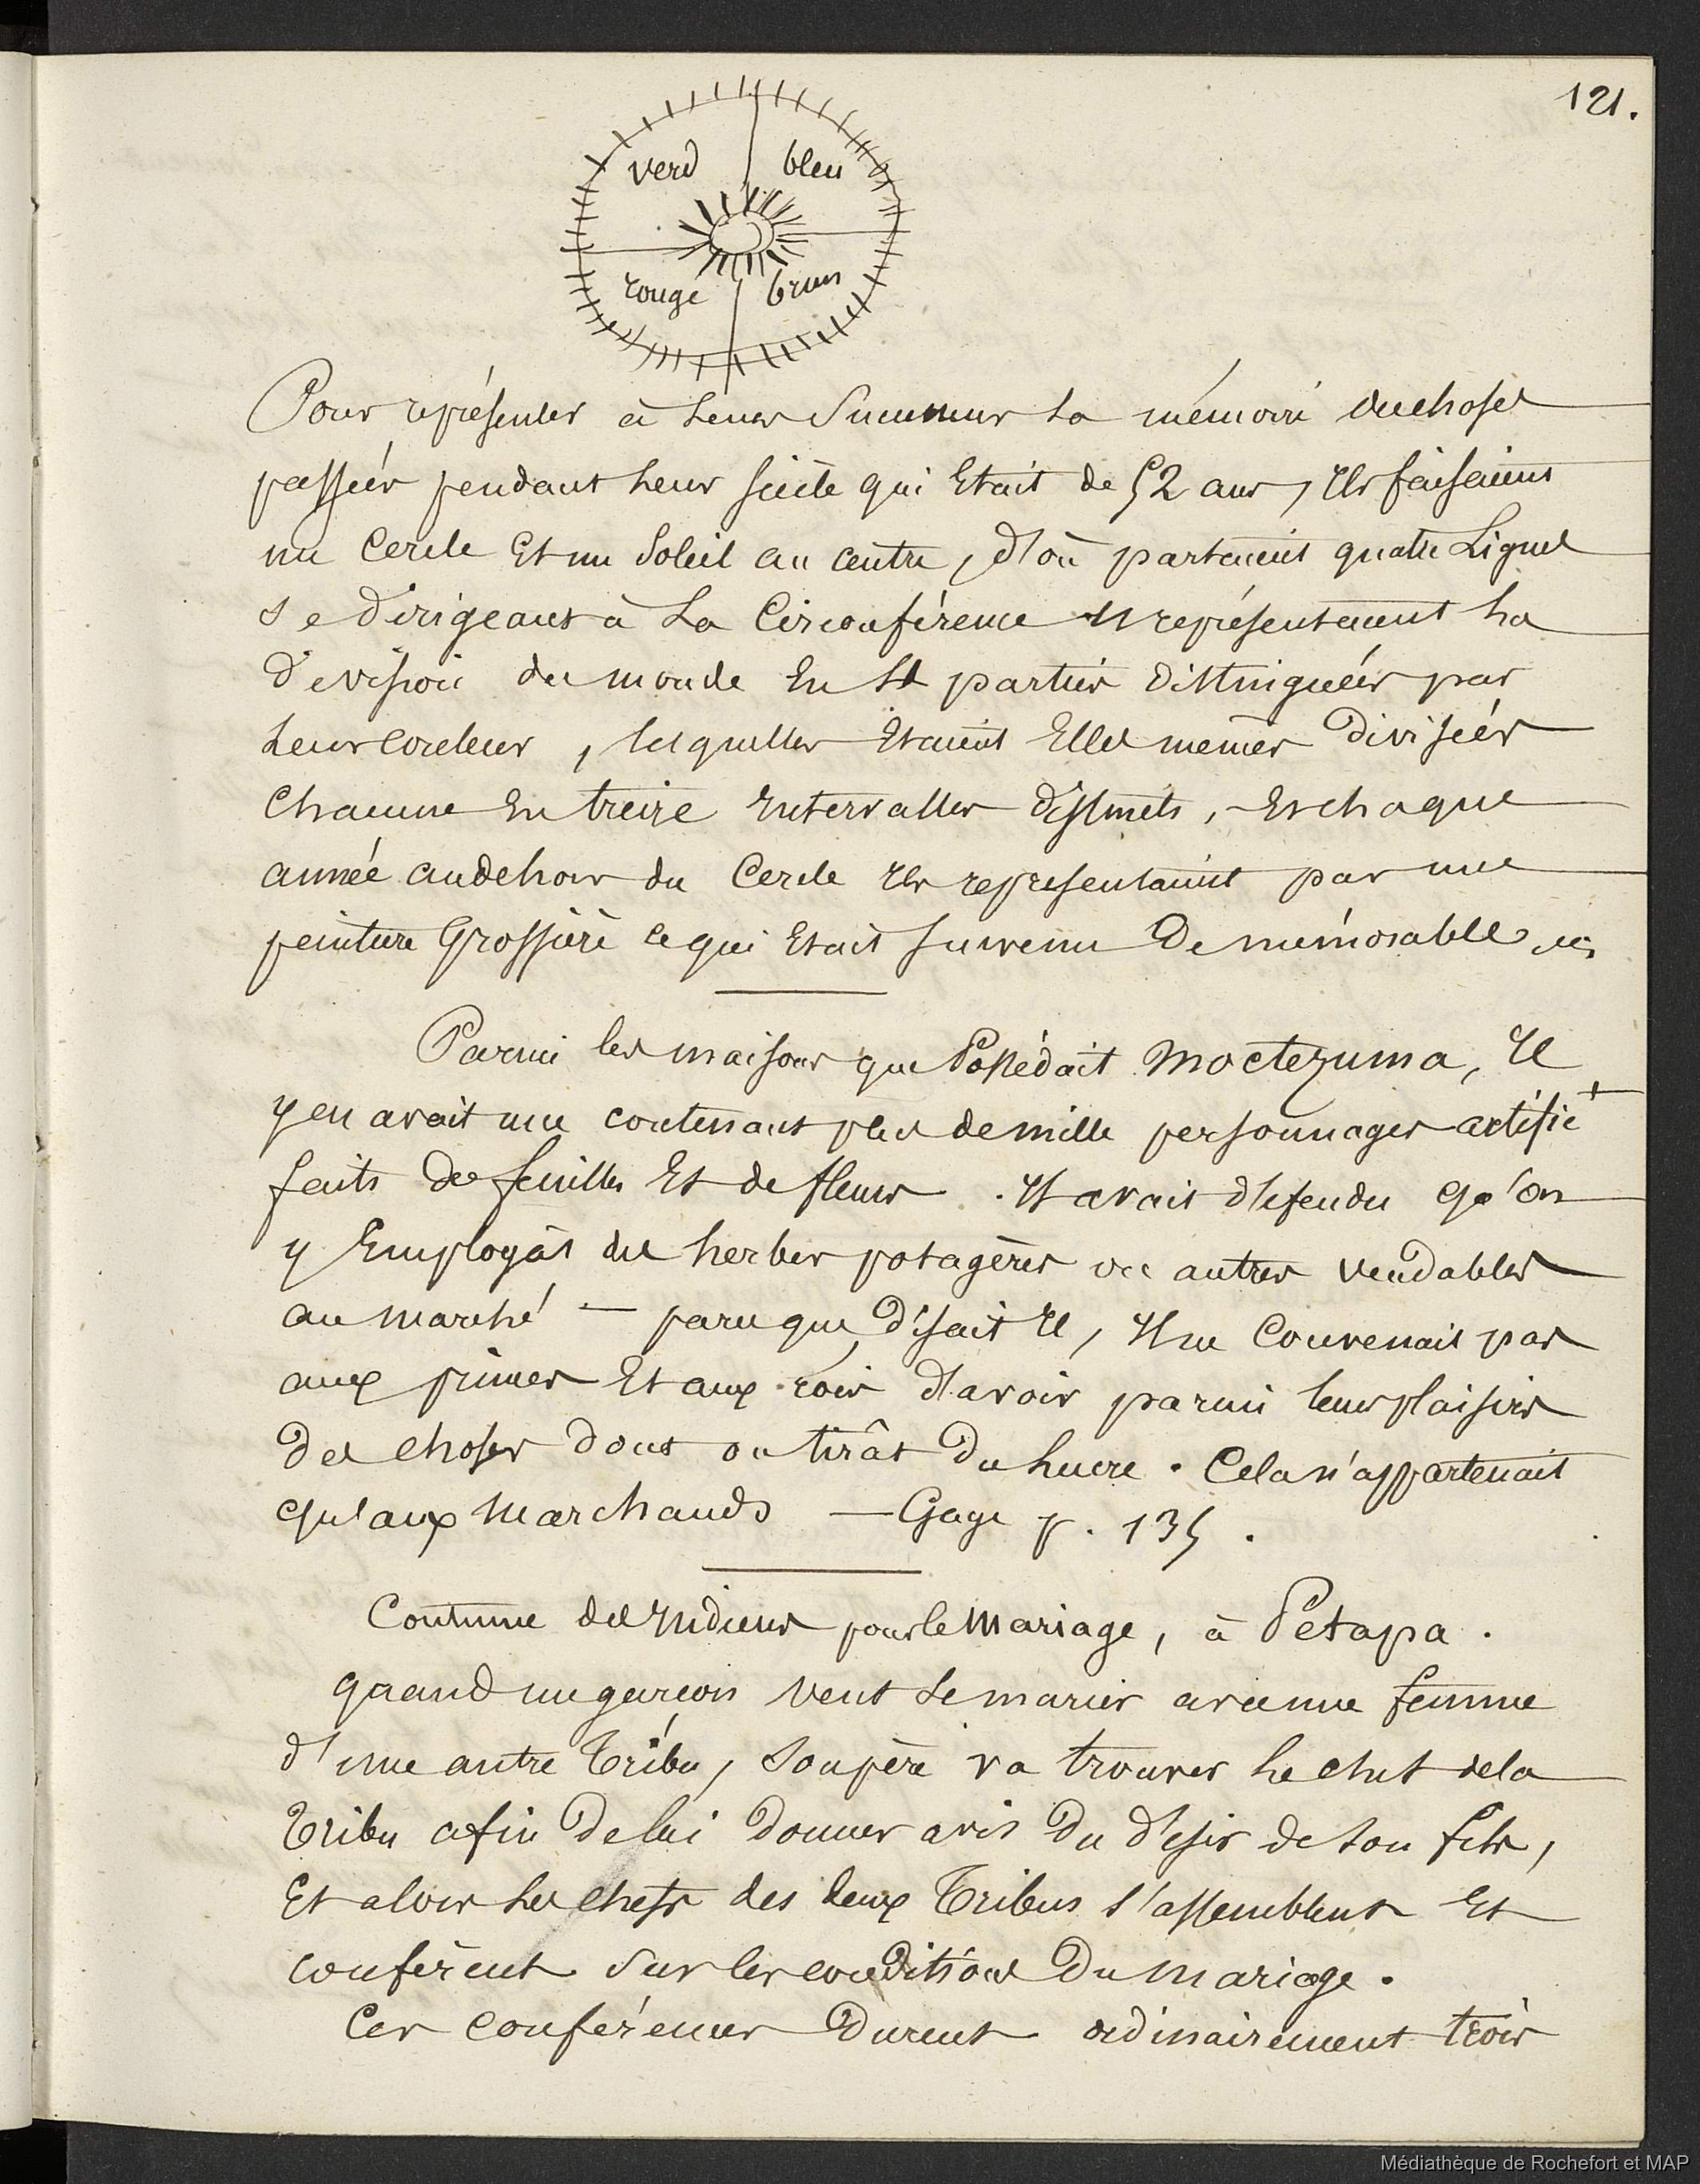 121.
verd bleu
rouge brun
Pour représenter à leurs Successeurs la mémoire des choses
passées pendant leur siècle qui Etait de 52 ans, Ils faisaient
un Cercle Et un Soleil au centre, d'où partaient quatre Lignes
se dirigeant à La Circonférence Et représentaient la
division du monde En 4 parties distinguées par
leurs couleurs, lesquelles Etaient Elles mêmes divisées
Chacune En treize Intervalles distincts, Et chaque
année au dehors du Cercle Ils representaient par une
peinture Grossière ce qui Etait survenu De mémorable
Parmi les maisons que Possédait Moctezuma, Il
y en avait une contenant plus de mille personnages artific+
faits de feuilles Et de fleurs. Il avait défendu qu'on
y Employât des herbes potagères ou autres vendables
au marché — parceque disait Il, Il ne Convenait pas
aux princes Et aux rois d'avoir parmi leurs plaisirs
Des choses dont on tirât Du lucre. Cela n'appartenait
qu'aux Marchands — Gage p. 135.
Coutume des Indiens pour le Mariage, à Petapa.
quand un garçon veut se marier avec une femme
d'une autre Tribu, son père va trouver le chef de la
Tribu afin De lui donner avis Du désir de son fils,
Et alors les chefs des deux Tribus s'assemblent Et
confèrent sur les conditions Du Mariage.
Ces conférences Durent ordinairement trois
Médiathèque de Rochefort et MAP